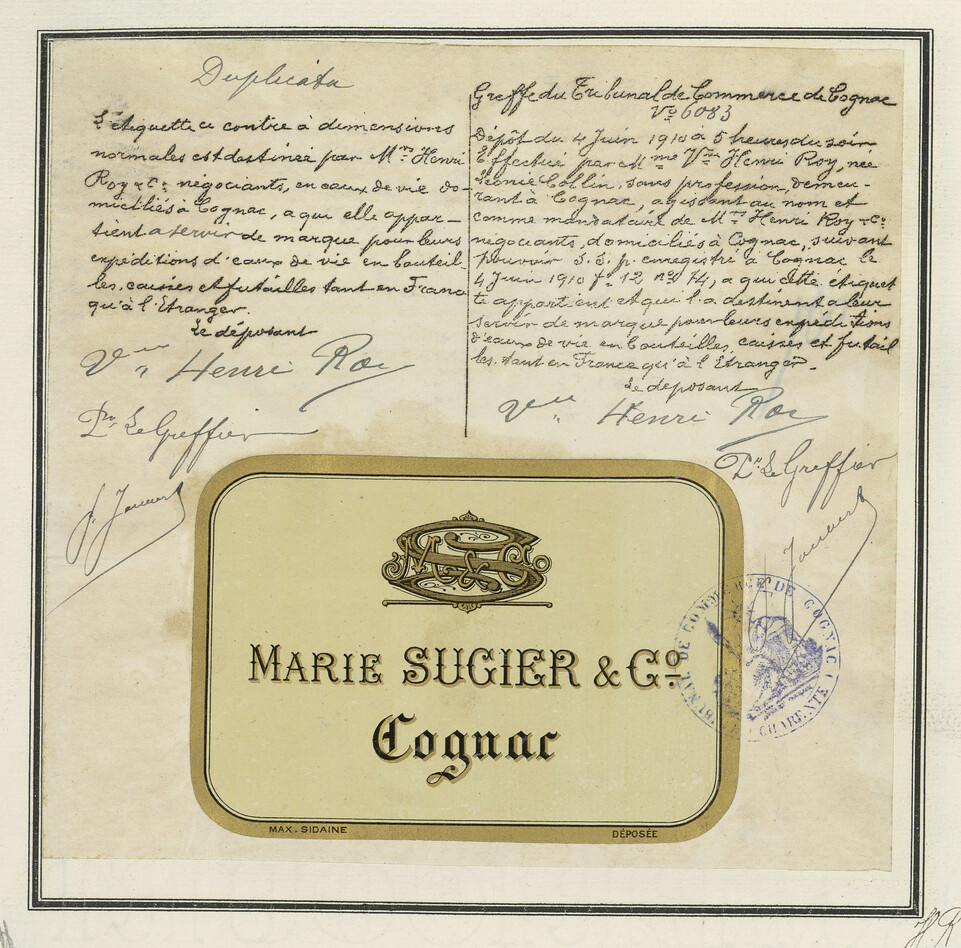 Duplicata
L'étiquette ci contre à dimensions
normales est destinée par Mrs Henri
Roy & Co. négociants, en eaux de vie do-
miciliés à Cognac, a qui elle appar-
tient a servir de marque pour leurs
expéditions d'eaux de vie en bouteil-
les, caisses et futailles tant en France
qu'à l'Etranger.
Le déposant
Vve Henri Roy
Pr. Le Greffier
Greffe du Tribunal de Commerce de Cognac
No 6083
Dépôt du 4 Juin 1910 à 5 heures du soir
Effectué par Mme Vve Henri Roy, née
Léonie Collin, sans profession, demeu-
rant à Cognac, agissant au nom et
comme mandataire de Mrs Henri Roy & Co.
négociants, domiciliés à Cognac, suivant
pouvoir S.S.p. enregistré à Cognac le
4 Juin 1910 fo 12 no 74, a qui cette étiquet
te appartient et qui l'a destinent a leur
servir de marque pour leurs expéditions
d'eaux de vie en bouteilles, caisses et futail
les, tant en France qu'à l'Étranger.
Le déposant
Vve Henri Roy
Pr. Le Greffier
M.S & Co
MARIE SUGIER & Co
Cognac
MAX. SIDAINE
DÉPOSÉE
TRIBUNAL DE COMMERCE DE COGNAC
(CHARENTE)
H.R